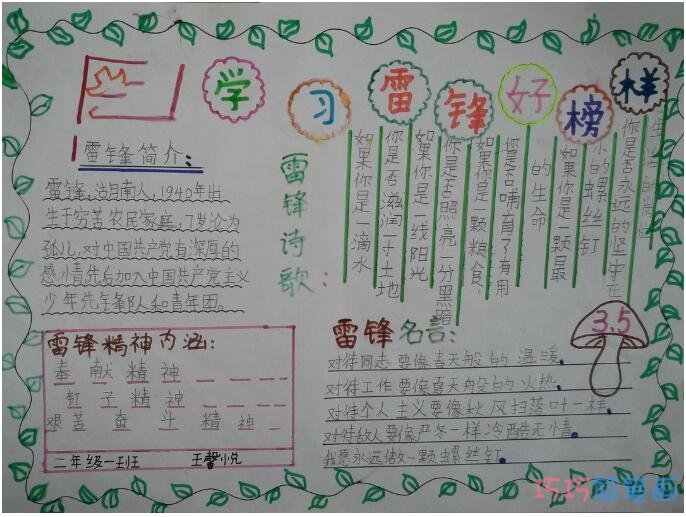 学习雷锋好榜样
雷锋简介:
雷锋,沽月南人,1940年出
生于穷苦农民家庭,7岁沦为
孤儿,对中国共产党有深厚的
感情先后加入中国共产党主义
少年先锋队和青年团。
雷锋诗歌:
如果你是一滴水
你是否滋润一寸土地
如果你是一线阳光
你是否照亮一分黑暗
如果你是一颗粮食
你是否哺育了有用
的生命
如果你是一颗最
小的螺丝钉
你是否永远的坚守在
生活的岗位
雷锋精神内涵:
奉献精神
钉子精神
艰苦奋斗精神
二年级一班 王馨小兑
3.5
雷锋名言:
对待同志要像春天般的温暖
对待工作要像夏天般的火热
对待个人主义要像秋风扫落叶一样
对待敌人要像严冬一样冷酷无情
我愿永远做一颗螺丝钉
巧巧简笔画